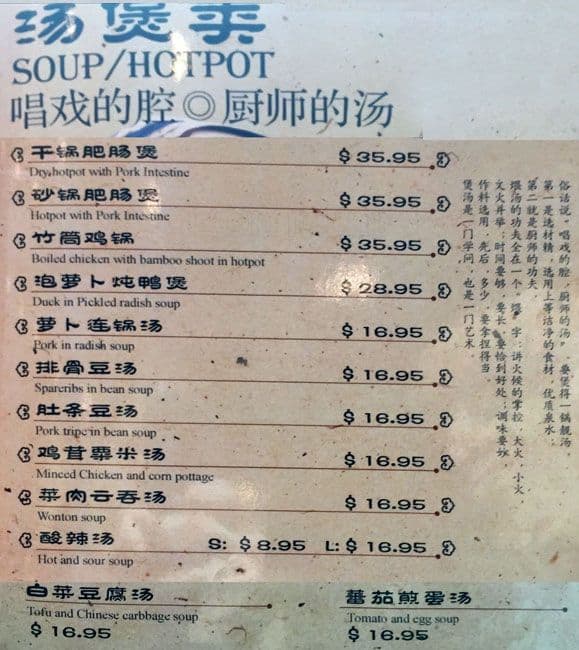 汤煲类
SOUP/HOTPOT
唱戏的腔◎厨师的汤
干锅肥肠煲 $35.95
Dry hotpot with Pork Intestine
砂锅肥肠煲 $35.95
Hotpot with Pork Intestine
竹筒鸡锅 $35.95
Boiled chicken with bamboo shoot in hotpot
泡萝卜炖鸭煲 $28.95
Duck in Pickled radish soup
萝卜连锅汤 $16.95
Pork in radish soup
排骨豆汤 $16.95
Spareribs in bean soup
肚条豆汤 $16.95
Pork tripe in bean soup
鸡茸粟米汤 $16.95
Minced Chicken and corn pottage
菜肉云吞汤 $16.95
Wonton soup
酸辣汤 S: $8.95 L: $16.95
Hot and sour soup
俗话说“唱戏的腔，厨师的汤”，要煲得一锅靓汤，
第一是选材精，选用上等洁净的食材，优质泉水；
第二就是厨师的功夫，
煨汤的功夫全在一个“煨”字：讲火候的掌控，大火，小火，
文火并举；时间要够，要长，要恰到好处；调味要妙，
作料选用，先后，多少，要拿捏得当。
煲汤是一门学问，也是一门艺术。
白菜豆腐汤
Tofu and Chinese carbbage soup
$16.95
蕃茄煎蛋汤
Tomato and egg soup
$16.95